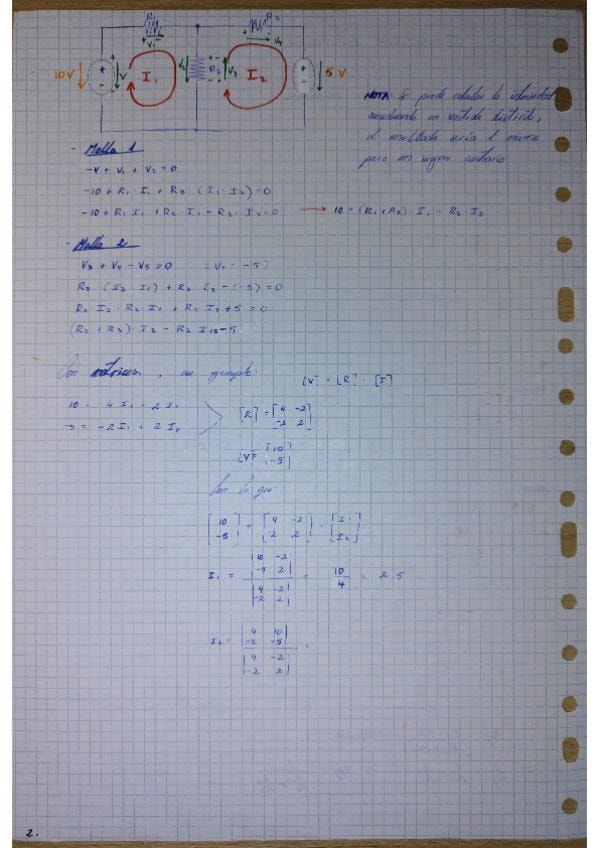 R1
R3
V1
V4
10V
V
I1
V2
R2
V3
I2
5 V
NOTA: Si puede calcular la intensidad
en sentido distinto,
el resultado sería el mismo
pero en signo contrario
- Malla 1
-V + V1 + V2 = 0
-10 + R1 · I1 + R2 · (I1 - I2) = 0
-10 + R1 I1 + R2 · I1 - R2 · I2 = 0 → 10 = (R1 + R2) · I1 - R2 · I2
- Malla 2
V3 + V4 - V5 = 0 (V5 = -5)
R2 · (I2 - I1) + R3 · I2 - (-5) = 0
R2 I2 - R2 I1 + R3 I2 + 5 = 0
(R2 + R3) · I2 - R2 I1 = -5
Con matrices, un ejemplo:
[V] = [R] · [I]
10 = 4 I1 - 2 I2
-5 = -2 I1 + 2 I2
[R] = [4 -2
-2 2]
[V] = [10
-5]
Con lo que:
[10 = [4 -2 · [I1
-5] -2 2] I2]
I1 = |10 -2
-5 2| / |4 -2
-2 2| = 10/4 = 2.5
I2 = |4 10
-2 -5| / |4 -2
-2 2|
2.